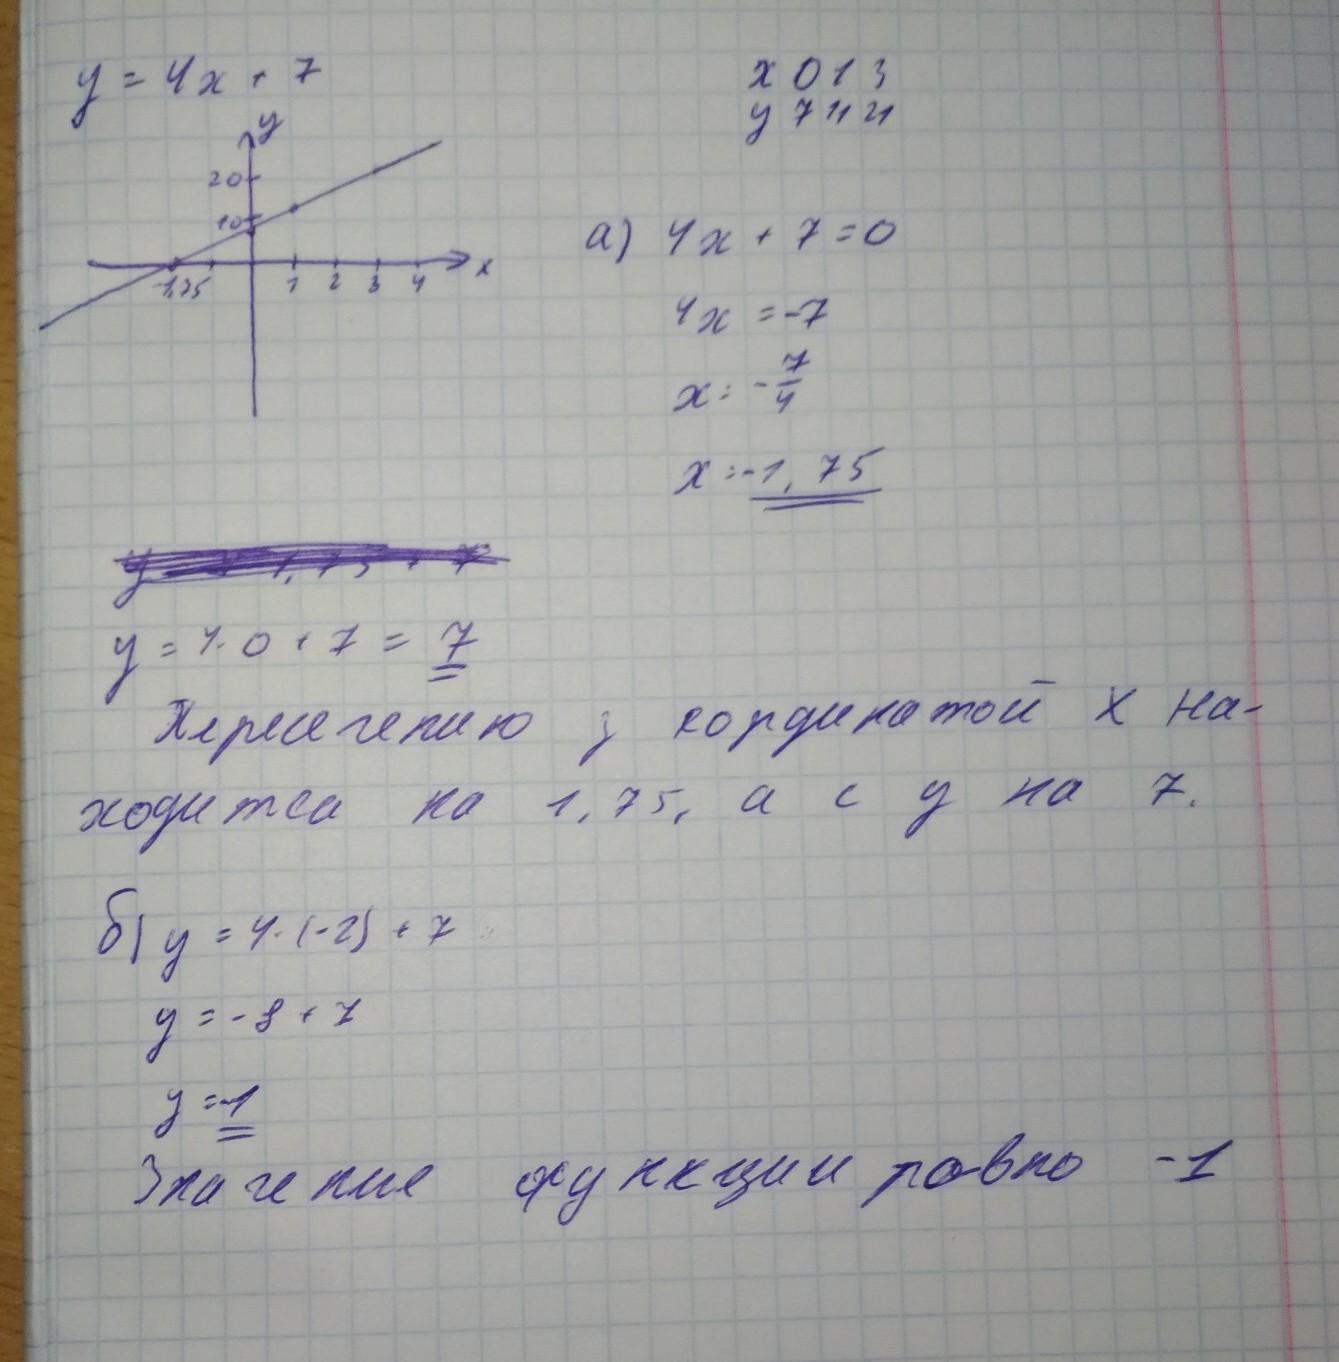 y = 4x + 7
x 0 1 3
y 7 11 21
y
20
10
-1,75 1 2 3 4 x
а) 4x + 7 = 0
4x = -7
x = -7/4
x = -1,75
y = 4·0 + 7 = 7
з кординатой х на-
ходитса на 1,75, а с y на 7.
б) y = 4·(-2) + 7
y = -8 + 7
y = -1
Значение функции равно -1